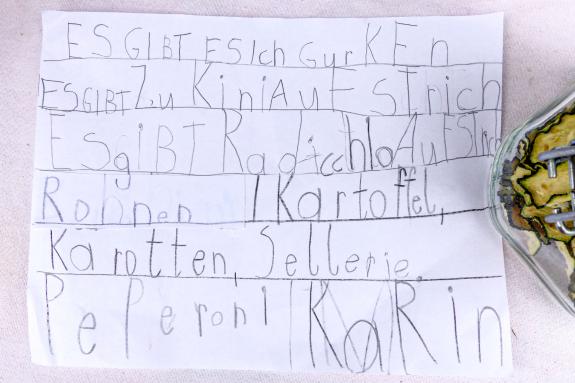 ES GIBT ESIch GurKEn
ESGIBT Zu KiniAuFSTrich
ESgiBT RadicchloAuFSTric
Rohnen 1 Kartoffel,
Karotten, Sellerie
PePeroni KaRin